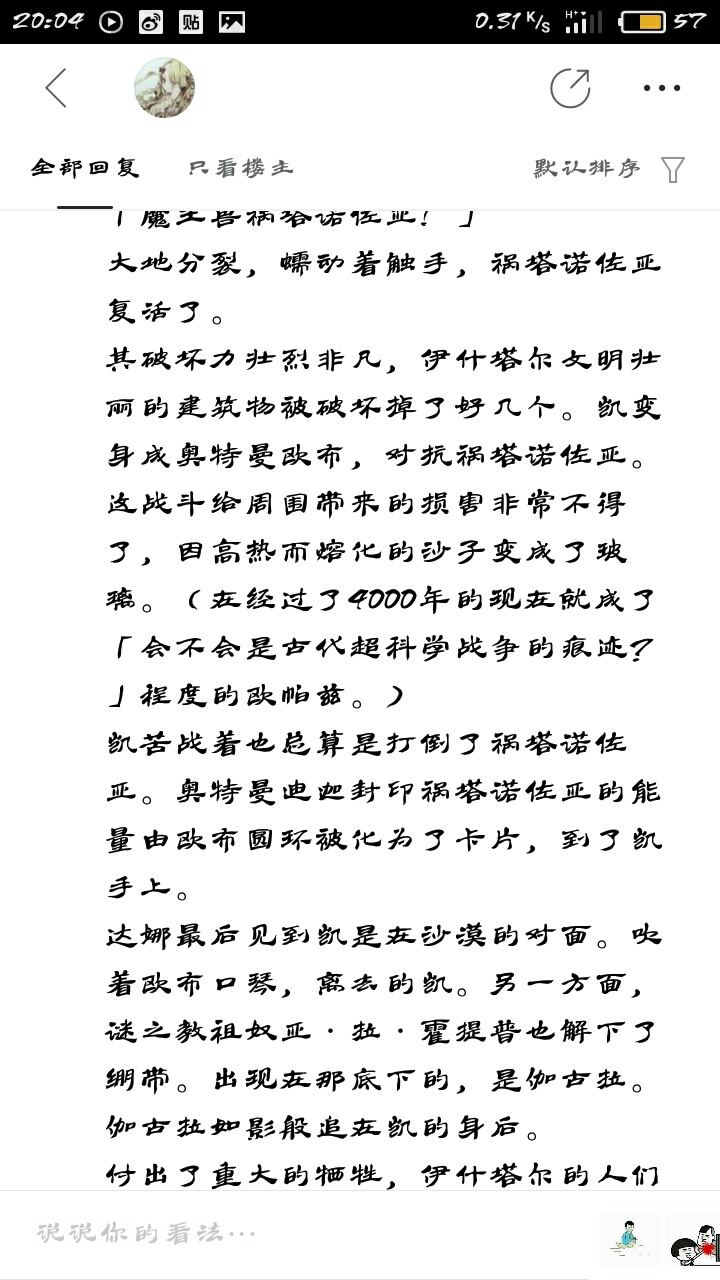 20:04
贴
0.31 K/s
H+
57
全部回复 只看楼主 默认排序
「魔王兽祸塔诺佐亚！」
大地分裂，蠕动着触手，祸塔诺佐亚
复活了。
其破坏力壮烈非凡，伊什塔尔文明壮
丽的建筑物被破坏掉了好几个。凯变
身成奥特曼欧布，对抗祸塔诺佐亚。
这战斗给周围带来的损害非常不得
了，因高热而熔化的沙子变成了玻
璃。（在经过了4000年的现在就成了
「会不会是古代超科学战争的痕迹？
」程度的欧帕兹。）
凯苦战着也总算是打倒了祸塔诺佐
亚。奥特曼迪迦封印祸塔诺佐亚的能
量由欧布圆环被化为了卡片，到了凯
手上。
达娜最后见到凯是在沙漠的对面。吹
着欧布口琴，离去的凯。另一方面，
谜之教祖奴亚·拉·霍提普也解下了
绷带。出现在那底下的，是伽古拉。
伽古拉如影般追在凯的身后。
付出了重大的牺牲，伊什塔尔的人们
说说你的看法…